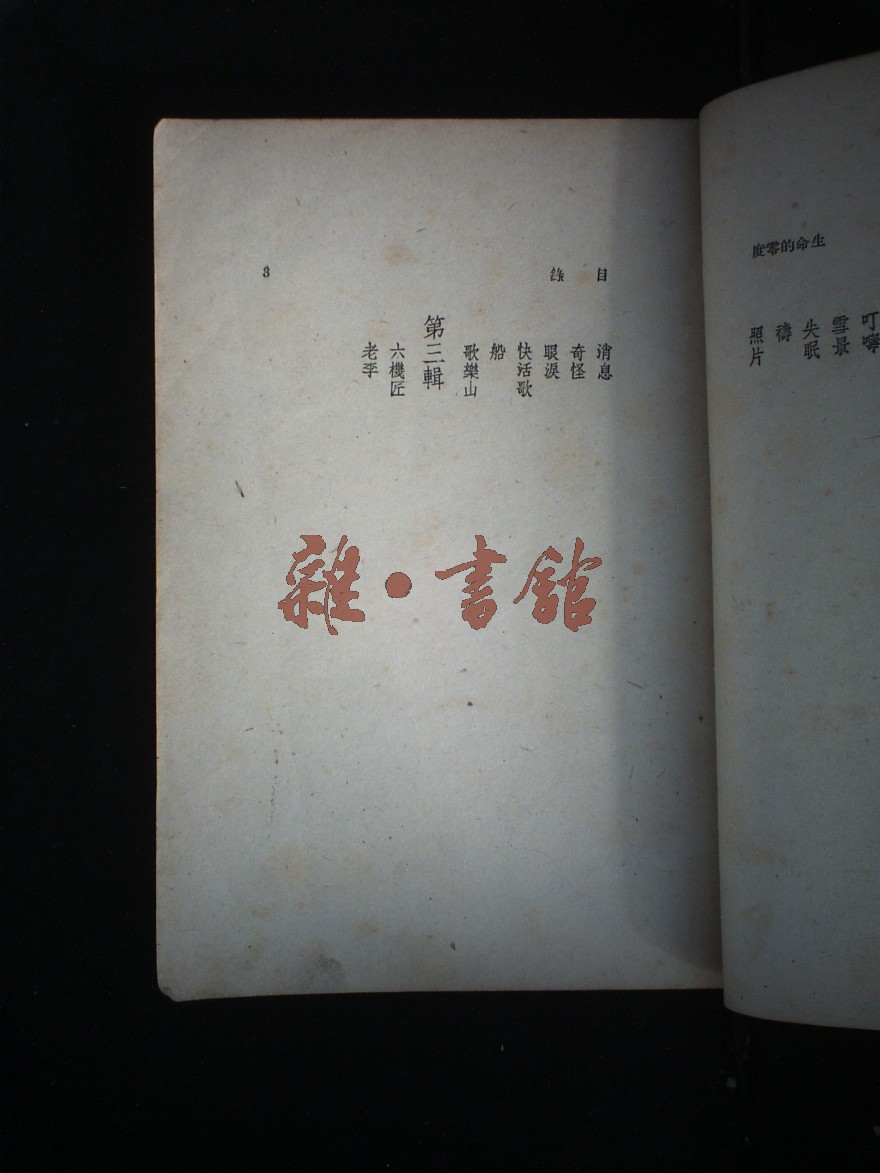 生命的零度
叮嚀
雪景
失眠
禱
照片
目錄
3
消息
奇怪
眼淚
快活歌
船
歌樂山
第三輯
六機匠
老李
雜·書館